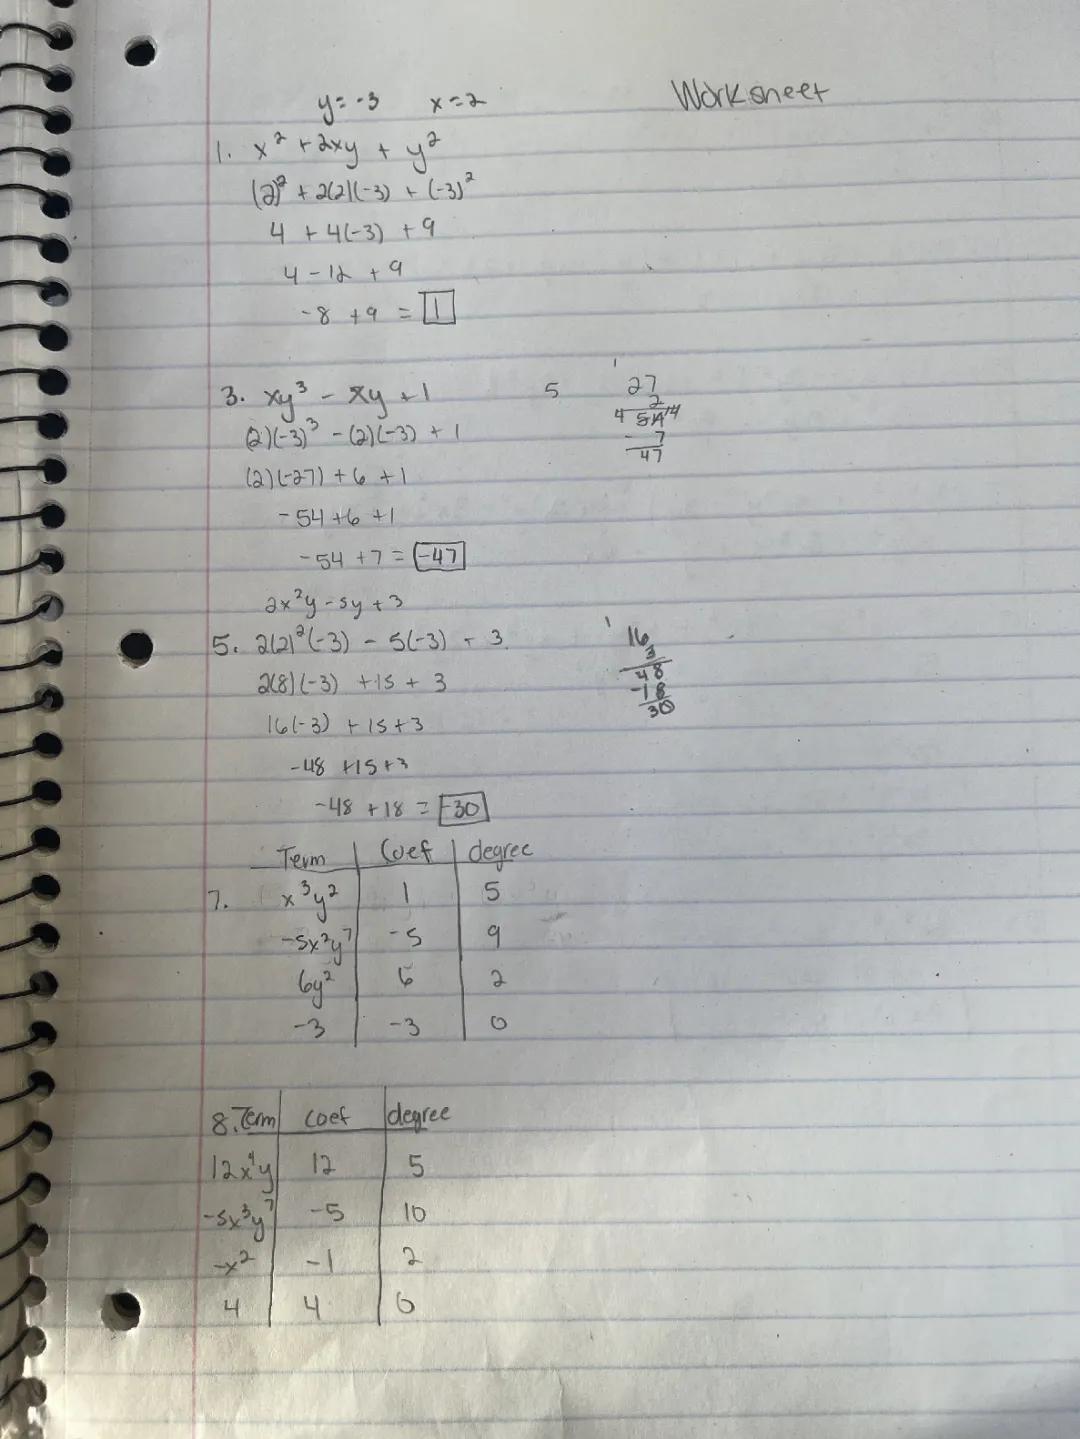 Worksheet
y=-3 x=2
1. x² + 2xy + y²
(2)² + 2(2)(-3) + (-3)²
4 + 4(-3) + 9
4 - 12 + 9
-8 + 9 = 1
3. xy³ - xy + 1
(2)(-3)³ - (2)(-3) + 1
(2)(-27) + 6 + 1
-54 + 6 + 1
-54 + 7 = -47
5
1
27
2
4 54 14
- 7
47
2x²y - 5y + 3
5. 2(2)²(-3) - 5(-3) + 3
2(8)(-3) + 15 + 3
16(-3) + 15 + 3
-48 + 15 + 3
-48 + 18 = -30
1
16
3
48
-18
30
Term Coef degree
7. x³y² 1 5
-5x²y⁷ -5 9
6y² 6 2
-3 -3 0
8. Term coef degree
12x⁴y 12 5
-5x³y⁷ -5 10
-x² -1 2
4 4 0